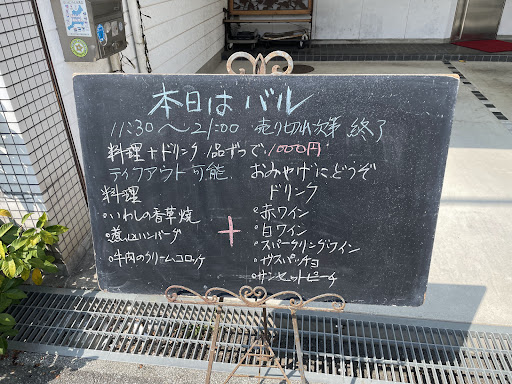 本日はバル
11:30〜21:00 売り切れ次第 終了
料理+ドリンク1品ずつで、1000円
テイクアウト可能、おみやげにどうぞ
料理
・いわしの香草焼
・煮込ハンバーグ
・牛肉のクリームコロッケ
+
ドリンク
・赤ワイン
・白ワイン
・スパークリングワイン
・ガスパッチョ
・サンセットピーチ